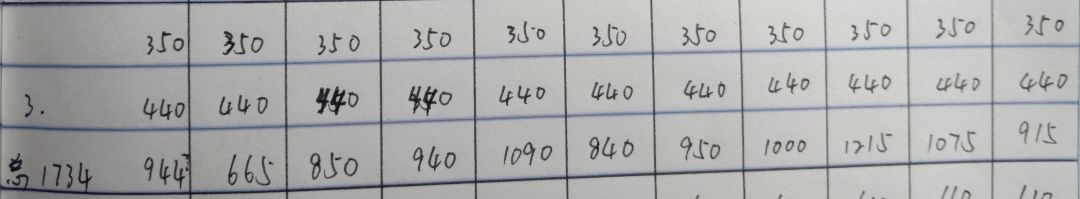 350 350 350 350 350 350 350 350 350 350 350
3. 440 440 440 440 440 440 440 440 440 440 440
总 1734 944 665 850 940 1090 840 950 1000 1215 1075 915
110